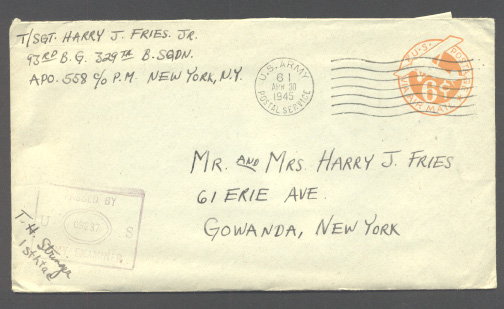 T/SGT. HARRY J. FRIES. JR.
93RD B.G. 329TH B.SQDN.
APO. 558 c/o P.M. NEW YORK, N.Y.
U.S. ARMY
61
APR 30
1945
POSTAL SERVICE
U.S. POSTAGE
6¢
VIA AIR MAIL
MR. AND MRS. HARRY J. FRIES
61 ERIE AVE.
GOWANDA, NEW YORK
PASSED BY
U S
EXAMINER
T. H.
1st